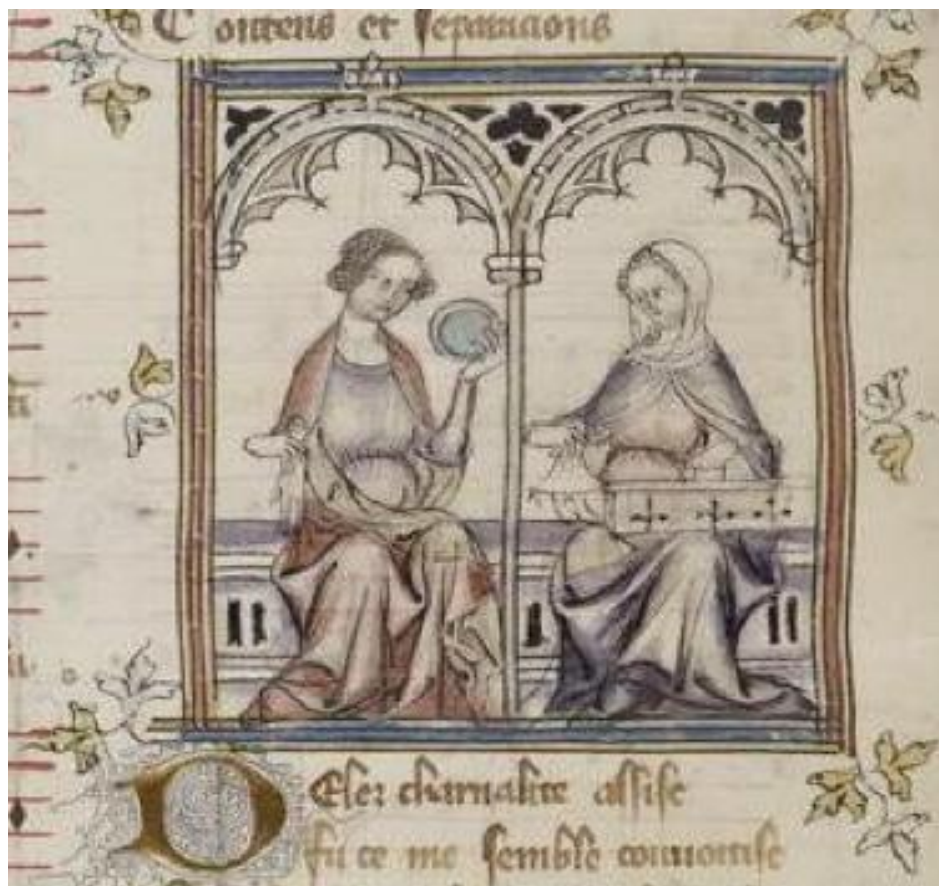 Contens et separacions
Deles charnalite assise
fu ce me semble couuoitise